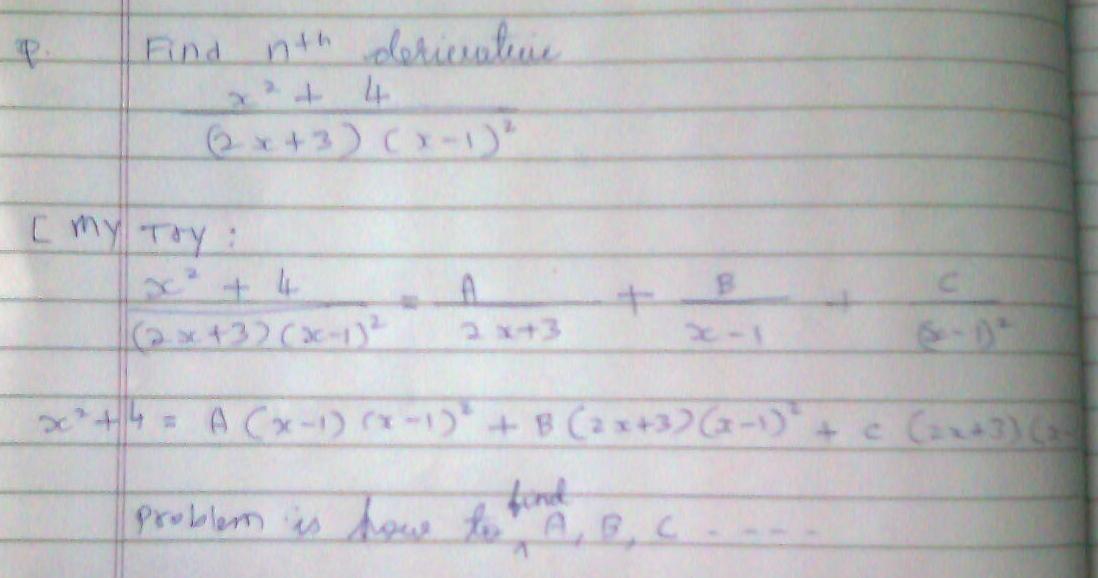 P. Find nth derivative
x² + 4
(2x+3) (x-1)²
[ My Try :
x² + 4 = A + B + C
(2x+3)(x-1)² 2x+3 x-1 (x-1)²
x²+4 = A(x-1)(x-1)² + B(2x+3)(x-1)² + C (2x+3)(x-
problem is how to find A, B, C - - - -